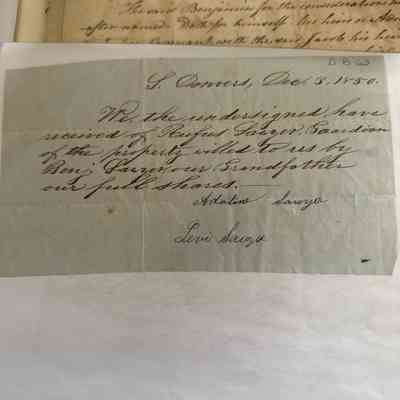 The said Benjamin for the consideration
after named Doth for himself his heirs
with the said Jacob his heirs
D B W
S. Danvers, Dec. 3. 1850.
We the undersigned have
received of Rufus Sawyer, Guardian
of the property willed to us by
Benj. Sawyer our Grandfather
our full shares.
Adaline Sawyer
Levi Sawyer